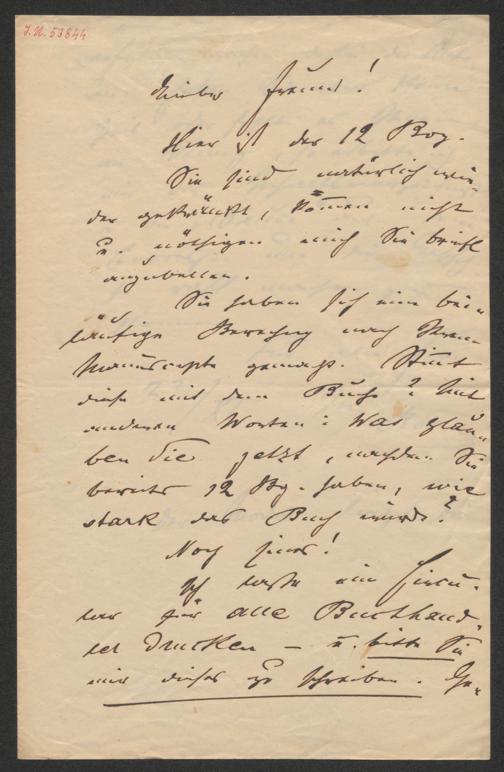 I. N. 53844
Lieber Freund!
Hier ist der 12 Bog.
Sie sind natürlich wie-
der gekränkt, kom̄en nicht
u. nöthigen mich Sie briefl
anzubellen.
Sie haben sich eine bei-
läufige Berechng nach Ihrem
Manuscripte gemacht. Stim̄t
diese mit dem Buche? Mit
anderen Worten: Was glau-
ben Sie jetzt, nachdem Sie
bereits 12 Bg. haben, wie
stark das Buch würde?
Noch Eines!
Ich lasse ein Circu-
lar für alle Buchhänd-
ler drucken – u. bitte Sie
mir dieses zu schreiben. Ge-